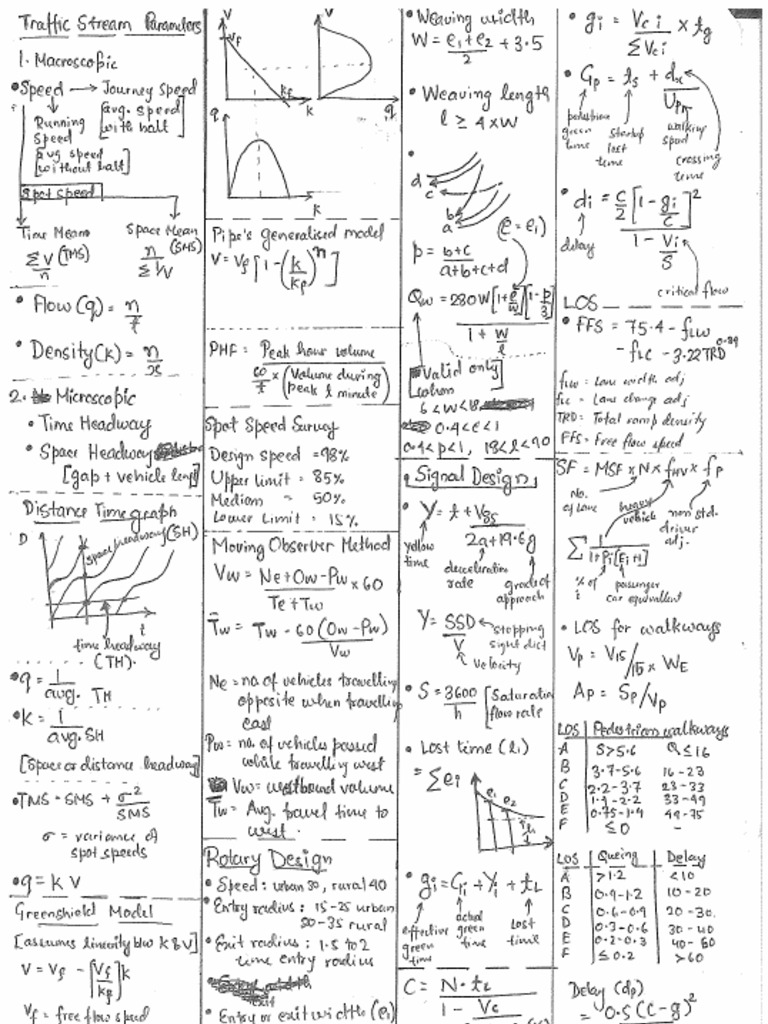 Traffic Stream Parameters
1. Macroscopic
• Speed → Journey Speed
Running Speed
[avg. speed with halt]
[avg speed without halt]
Spot speed
Time Mean (TMS)
Space Mean (SMS)
Σv/n
n/Σ1/v
• Flow (q) = n/t
• Density (k) = n/x
2. Microscopic
• Time Headway
• Space Headway
[gap + vehicle leng]
Distance Time graph
D
space headway (SH)
t
time headway (TH).
• q = 1/avg. TH
• k = 1/avg. SH
[Space or distance headway]
• TMS = SMS + σ²/SMS
σ = variance of
spot speeds
• q = k v
Greenshield Model
[assumes linearity b/w k & v]
V = Vf - [Vf/kf] k
Vf = free flow speed
V
Vf
kf
k
V
q
q
k
Pipe's generalised model
V = Vf [1 - (k/kf)^n]
PHF = Peak hour volume
60/t × (Volume during peak t minute)
Spot Speed Survey
Design speed = 98%
Upper limit = 85%
Medium " 50%
Lower Limit = 15%
Moving Observer Method
Vw = Ne + Ow - Pw / Te + Tw × 60
T̄w = Tw - 60 (Ow - Pw) / Vw
Ne = no. of vehicles travelling
opposite when travelling
east
Pw = no. of vehicles passed
while travelling west
Vw = westbound volume
Tw = Avg. travel time to
west.
Rotary Design
• Speed : urban 30, rural 40
• Entry radius : 15-25 urban
20-35 rural
• Exit radius : 1.5 to 2
time entry radius
• Entry or exit width (e1)
• Weaving width
W = e1 + e2 / 2 + 3.5
• Weaving length
l ≥ 4 × W
d
c
b
a
(e = e1)
p = b+c / a+b+c+d
Qw = 280W [1 + e/W] [1 - p/3]
1 + W/l
Valid only when
6 < W < 18
0.4 < e < 1
0.4 < p < 1, 18 < l < 90
Signal Design
• Y = t + V85 / 2a + 19.6g
yellow time
deceleration rate
grade of approach
Y = SSD / V
stopping sight dist
velocity
• S = 3600/h [Saturation flow rate
• Lost time (l1)
= Σ ei
e1 e2
h
• gi = Gi + Yi + tL
effective green time
actual green time
Lost time
C = N. tL
1 - Vc
• gi = Vci / ΣVci × tg
• Gp = ts + dx / Up
pedestrian green time
startup lost time
walking speed
crossing time
• di = C/2 [1 - gi/C]²
1 - Vi/S
delay
critical flow
LOS
• FFS = 75.4 - fLW
- fLC - 3.22 TRD^0.84
fLW = Lane width adj
fLC = Lane change adj
TRD = Total ramp density
FFS = Free flow speed
SF = MSF × N × fHV × fp
No. of lane
heavy vehicle
non std. driver adj.
Σ 1 / 1 + Pi [Ei + 1]
% of i
passenger car equivalent
• LOS for walkways
Vp = V15 / 15 × WE
Ap = Sp / Vp
LOS | Pedestrians walkways
A | S > 5.6 | Q ≤ 16
B | 3.7-5.6 | 16-23
C | 2.2-3.7 | 23-33
D | 1.4-2.2 | 33-49
E | 0.75-1.4 | 49-75
F | ≤ 0 | -
LOS | Queing | Delay
A | > 1.2 | < 10
B | 0.9-1.2 | 10-20
C | 0.6-0.9 | 20-30.
D | 0.3-0.6 | 30-40
E | 0.2-0.3 | 40-60
F | ≤ 0.2 | > 60
Delay (dp)
= 0.5 (C - g)²